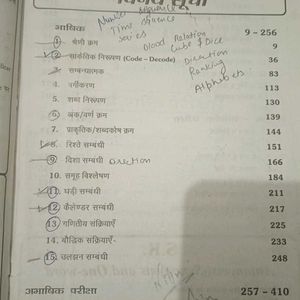 विषय सूची
Number sequence
Time sequence
series
Blood Relation
Cube & Dice
Direction
Ranking
Alphabets
शाब्दिक 9 - 256
1. श्रेणी क्रम 9
2. सांकेतिक निरूपण (Code – Decode) 36
3. सम्बन्धात्मक 83
4. वर्गीकरण 113
5. शब्द निरूपण 130
6. अंक/वर्ण क्रम 139
7. प्राकृतिक/शब्दकोष क्रम 144
8. रिश्ते सम्बंधी 151
9. दिशा सम्बंधी Direction 166
10. समूह विश्लेषण 184
11. घड़ी सम्बंधी 211
12. कैलेण्डर सम्बंधी 217
13. गणितीय संक्रियाएँ 225
14. बौद्धिक सक्रियाएँ- 233
15. उलझन सम्बंधी 248
अशाब्दिक परीक्षा 257 - 410